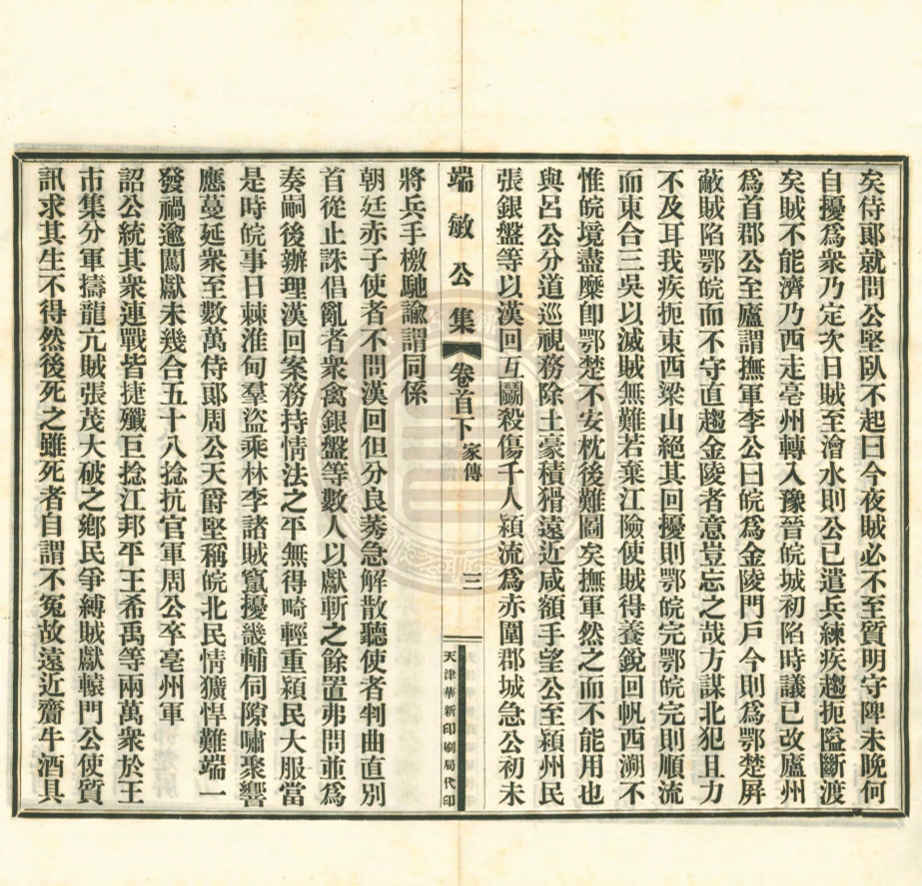 矣侍郎就問公堅臥不起曰今夜賊必不至質明守陴未晚何
自擾爲衆乃定次日賊至澮水則公已遣兵練疾趨扼隘斷渡
矣賊不能濟乃西走亳州轉入豫晉皖城初陷時議已改廬州
爲首郡公至廬謂撫軍李公曰皖爲金陵門戶今則爲鄂楚屏
蔽賊陷鄂皖而不守直趨金陵者意豈忘之哉方謀北犯且力
不及耳我疾扼東西梁山絕其回擾則鄂皖完鄂皖完則順流
而東合三吳以滅賊無難若棄江險使賊得養銳回帆西溯不
惟皖境盡糜卽鄂楚不安枕後難圖矣撫軍然之而不能用也
與呂公分道巡視務除土豪積猾遠近咸額手望公至潁州民
張銀盤等以漢回互鬭殺傷千人潁流爲赤圍郡城急公初未
端敏公集 卷首下 家傳 三 天津華新印刷局代印
將兵手檄馳諭謂同係
朝廷赤子使者不問漢回但分良莠急解散聽使者判曲直別
首從止誅倡亂者衆禽銀盤等數人以獻斬之餘置弗問並爲
奏嗣後辦理漢回案務持情法之平無得畸輕重潁民大服當
是時皖事日棘淮甸羣盜乘林李諸賊竄擾畿輔伺隙嘯聚響
應蔓延衆至數萬侍郎周公天爵堅稱皖北民情獷悍難端一
發禍逾闖獻未幾合五十八捻抗官軍周公卒亳州軍
詔公統其衆連戰皆捷殲巨捻江邦平王希禹等兩萬衆於王
市集分軍擣龍亢賊張茂大破之鄉民爭縛賊獻轅門公使質
訊求其生不得然後死之雖死者自謂不冤故遠近齎牛酒具